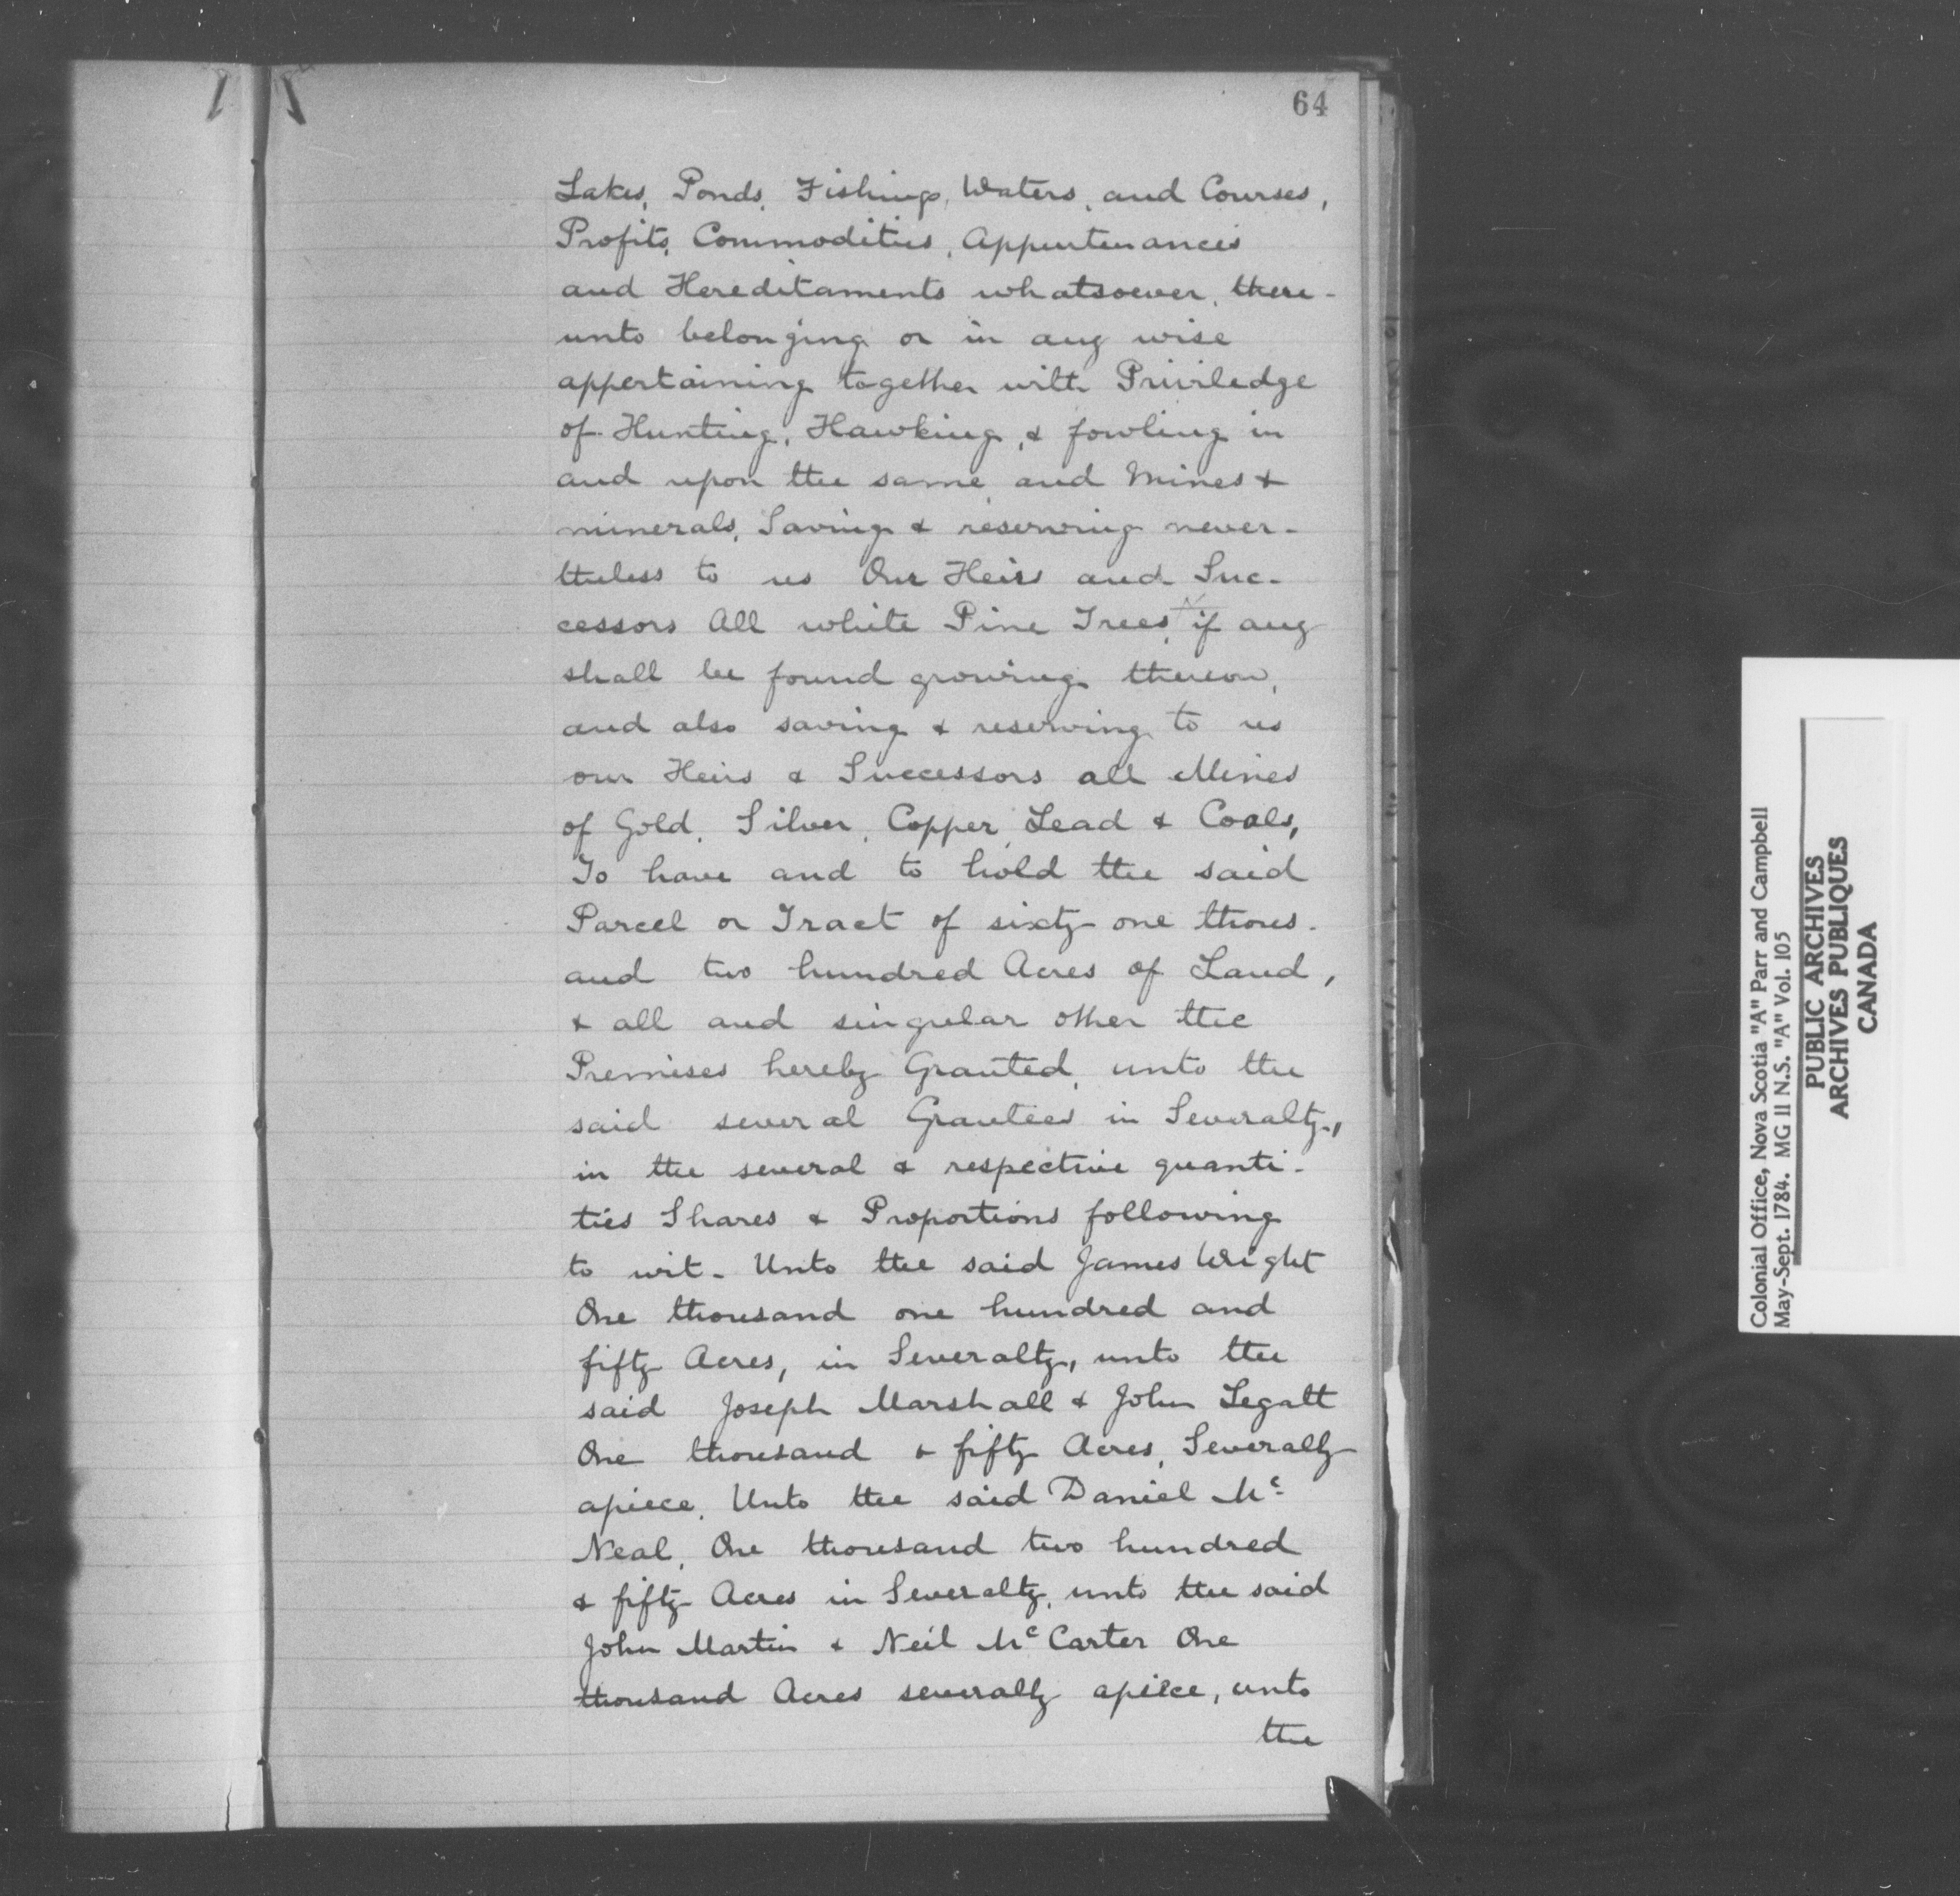 64
Lakes, Ponds, Fishings, Waters, and Courses,
Profits, Commodities, Appurtenances
and Hereditaments whatsoever, there-
unto belonging or in any wise
appertaining together with Priviledge
of Hunting, Hawking, & fowling in
and upon the same, and Mines &
minerals, Saving & reserving never-
theless to us Our Heirs and Suc-
cessors All white Pine Trees, if any
shall be found growing thereon,
and also saving & reserving to us
our Heirs & Successors all Mines
of Gold, Silver, Copper, Lead & Coals,
To have and to hold the said
Parcel or Tract of sixty one thous-
and two hundred Acres of Land,
& all and singular other the
Premises hereby Granted, unto the
said several Grantees in Severalty,
in the several & respective quanti-
ties Shares & Proportions following
to wit - Unto the said James Wright
One thousand one hundred and
fifty Acres, in Severalty, unto the
said Joseph Marshall & John Legatt
One thousand & fifty Acres, Severally
apiece, Unto the said Daniel Mc
Neal, One thousand two hundred
& fifty Acres in Severalty, unto the said
John Martin & Neil Mc Carter One
thousand Acres severally apiece, unto
the
Colonial Office, Nova Scotia "A" Parr and Campbell
May-Sept. 1784. MG 11 N.S. "A" Vol. 105
PUBLIC ARCHIVES
ARCHIVES PUBLIQUES
CANADA